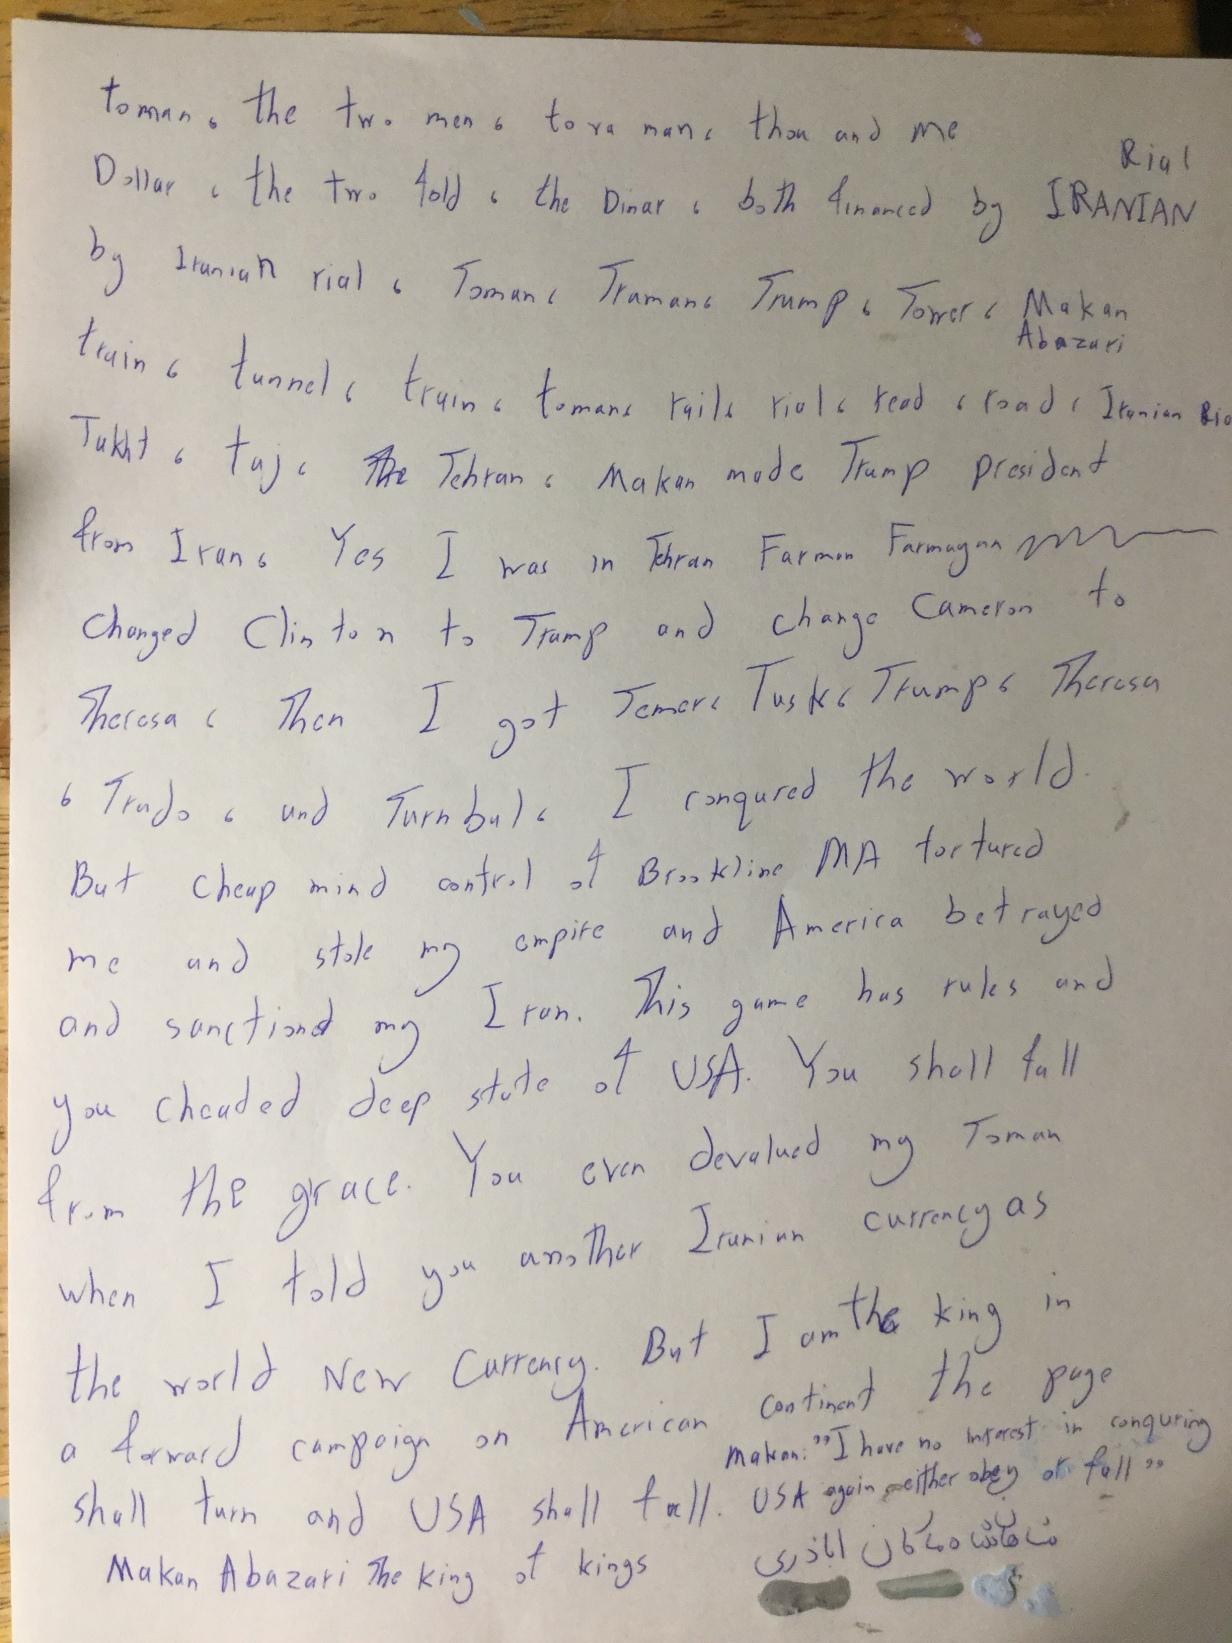 toman، the two men، to va man، thou and me
Rial
Dollar، the two fold، the Dinar، both financed by IRANIAN
by Iranian rial، Toman، Traman، Trump، Tower، Makan
Abazari
train، tunnel، train، toman، rail، rial، read، road، Iranian Ria
Takht، taj، The Tehran، Makan made Trump president
from Iran، Yes I was in Tehran Farman Farmayan
changed Clinton to Trump and change Cameron to
Theresa، Then I got Temer، Tusk، Trump، Theresa
، Trudo، and Turnbul، I conqured the world.
But cheap mind control of Brookline MA tortured
me and stole my empire and America betrayed
and sanctiond my Iran. This game has rules and
you cheaded deep state of USA. You shall fall
from the grace. You even devalued my Toman
when I told you another Iranian currency as
the world New Currency. But I am the king in
a forward campaign on American continent the page
Makan:"I have no interest in conquring
shall turn and USA shall fall. USA again either obey or fall"
شاهانشاه ماکان اباذری
Makan Abazari The king of kings